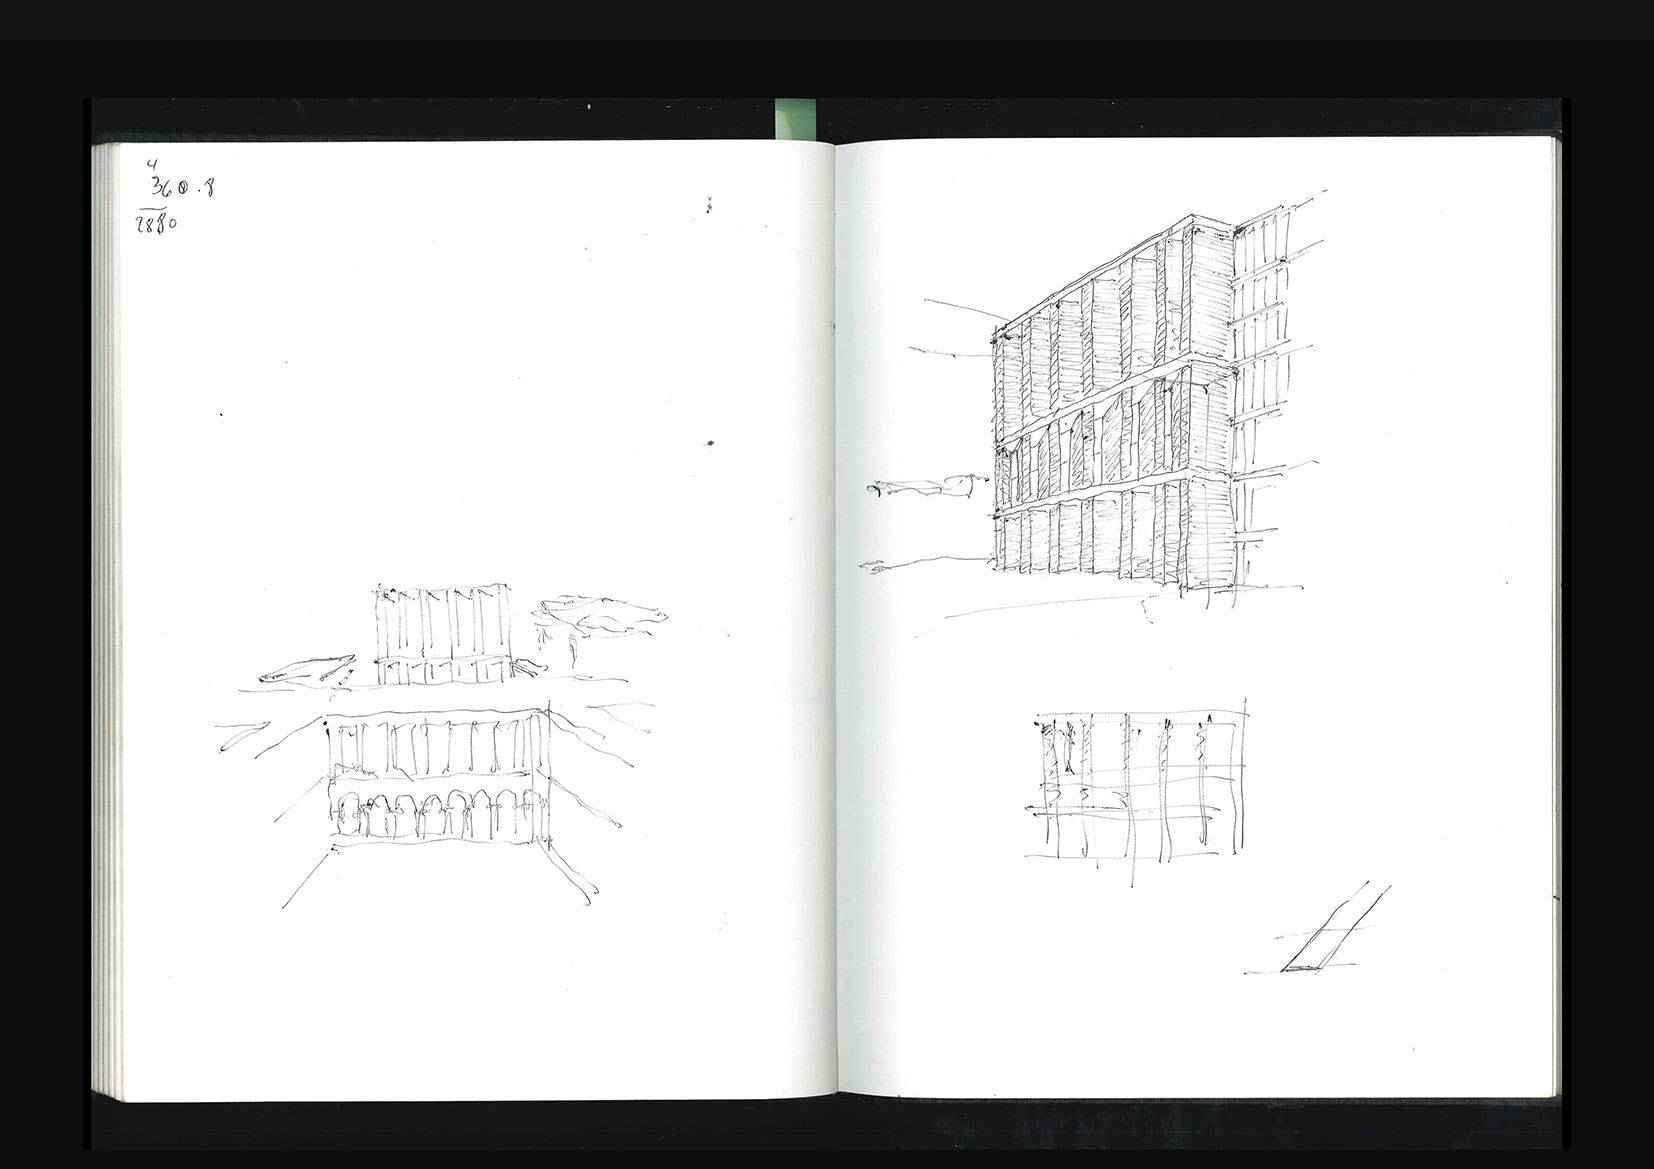 4
360.8
2880